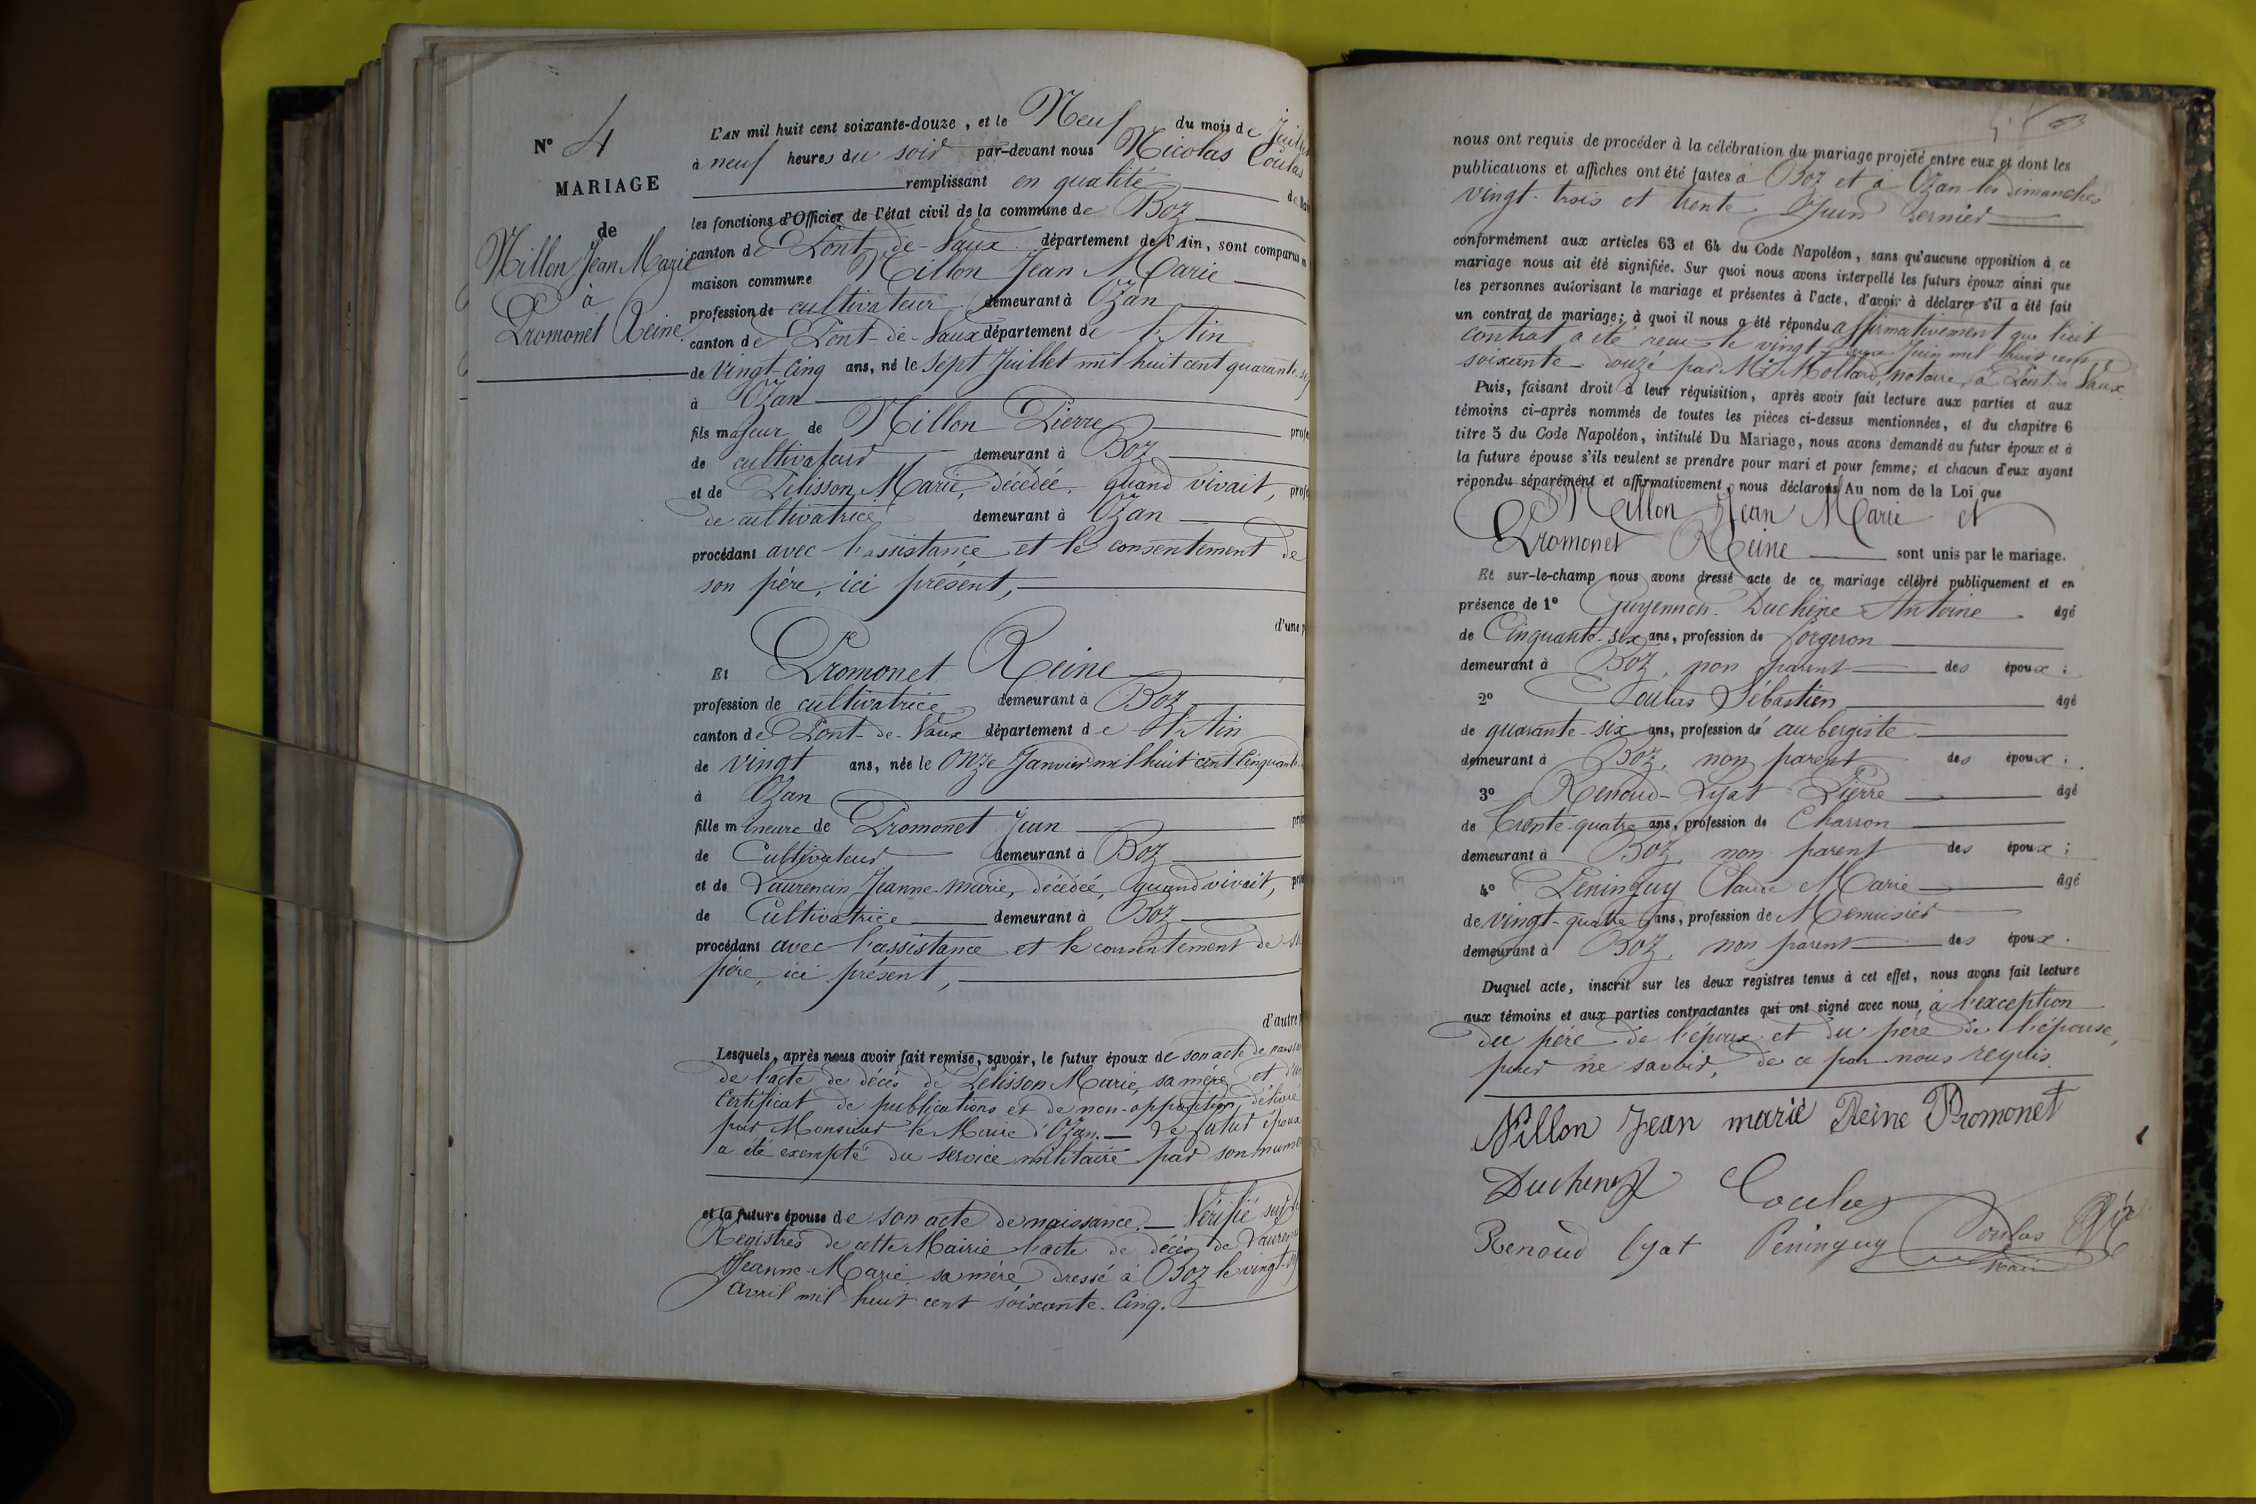 N° 4
MARIAGE
de
Nillon Jean Marie
à
Promonet Reine
L'AN mil huit cent soixante-douze, et le Neuf du mois de Juillet
à neuf heures du soir par-devant nous Nicolas Coulas
remplissant en qualité de
les fonctions d'Officier de l'état civil de la commune de Boz
canton de Pont-de-Vaux département de l'Ain, sont comparus
maison commune Nillon Jean Marie
profession de cultivateur demeurant à Ozan
canton de Pont-de-Vaux département de l'Ain
de vingt-cinq ans, né le sept Juillet mil huit cent quarante
à Ozan
fils majeur de Nillon Pierre
de cultivateur demeurant à Boz
et de Pelisson Marie, décédée, quand vivait,
de cultivatrice demeurant à Ozan
procédant avec l'assistance et le consentement de
son père, ici présent,
d'une
Et Promonet Reine
profession de cultivatrice demeurant à Boz
canton de Pont-de-Vaux département de l'Ain
de vingt ans, née le Onze Janvier mil huit cent Cinquante
à Ozan
fille mineure de Promonet Jean
de Cultivateur demeurant à Boz
et de Laurencin Jeanne-Marie, décédée, quand vivait,
de Cultivatrice demeurant à Boz
procédant avec l'assistance et le consentement de
père, ici présent,
d'autre
Lesquels, après nous avoir fait remise, savoir, le futur époux de son acte de
de l'acte de décès de Pelisson Marie, sa mère et
Certificat de publications et de non-opposition délivré
par Monsieur le Maire d'Ozan. — Le futur époux
a été exempté du service militaire par son
et la future épouse de son acte de naissance. — Vérifié sur
Registres de cette Mairie l'acte de décès de
Jeanne-Marie sa mère dressé à Boz le vingt
avril mil huit cent soixante-Cinq.
nous ont requis de procéder à la célébration du mariage projeté entre eux et dont les
publications et affiches ont été faites à Boz et à Ozan les dimanches
vingt-trois et trente Juin dernier
conformément aux articles 63 et 64 du Code Napoléon, sans qu'aucune opposition à ce
mariage nous ait été signifiée. Sur quoi nous avons interpellé les futurs époux ainsi que
les personnes autorisant le mariage et présentes à l'acte, d'avoir à déclarer s'il a été fait
un contrat de mariage; à quoi il nous a été répondu affirmativement que
contrat a été reçu le vingt Juin mil huit cent
soixante-douze par Me Mottard, notaire, à Pont de Vaux
Puis, faisant droit à leur réquisition, après avoir fait lecture aux parties et aux
témoins ci-après nommés de toutes les pièces ci-dessus mentionnées, et du chapitre 6
titre 5 du Code Napoléon, intitulé Du Mariage, nous avons demandé au futur époux et à
la future épouse s'ils veulent se prendre pour mari et pour femme; et chacun d'eux ayant
répondu séparément et affirmativement, nous déclarons Au nom de la Loi que
Nillon Jean Marie et
Promonet Reine sont unis par le mariage.
Et sur-le-champ nous avons dressé acte de ce mariage célébré publiquement et en
présence de 1° Guyennon-Duchêne Antoine âgé
de Cinquante-six ans, profession de forgeron
demeurant à Boz, non parent des époux;
2° Coulas Sébastien âgé
de quarante-six ans, profession de aubergiste
demeurant à Boz, non parent des époux;
3° Renoud-Lyat Pierre âgé
de trente-quatre ans, profession de Charron
demeurant à Boz, non parent des époux;
4° Peninguy Claude Marie âgé
de vingt-quatre ans, profession de Menuisier
demeurant à Boz, non parent des époux.
Duquel acte, inscrit sur les deux registres tenus à cet effet, nous avons fait lecture
aux témoins et aux parties contractantes qui ont signé avec nous, à l'exception
du père de l'époux et du père de l'épouse,
pour ne savoir, de ce par nous requis.
Nillon Jean marie Reine Promonet
Duchene Coulas
Renoud lyat Peninguy Coulas